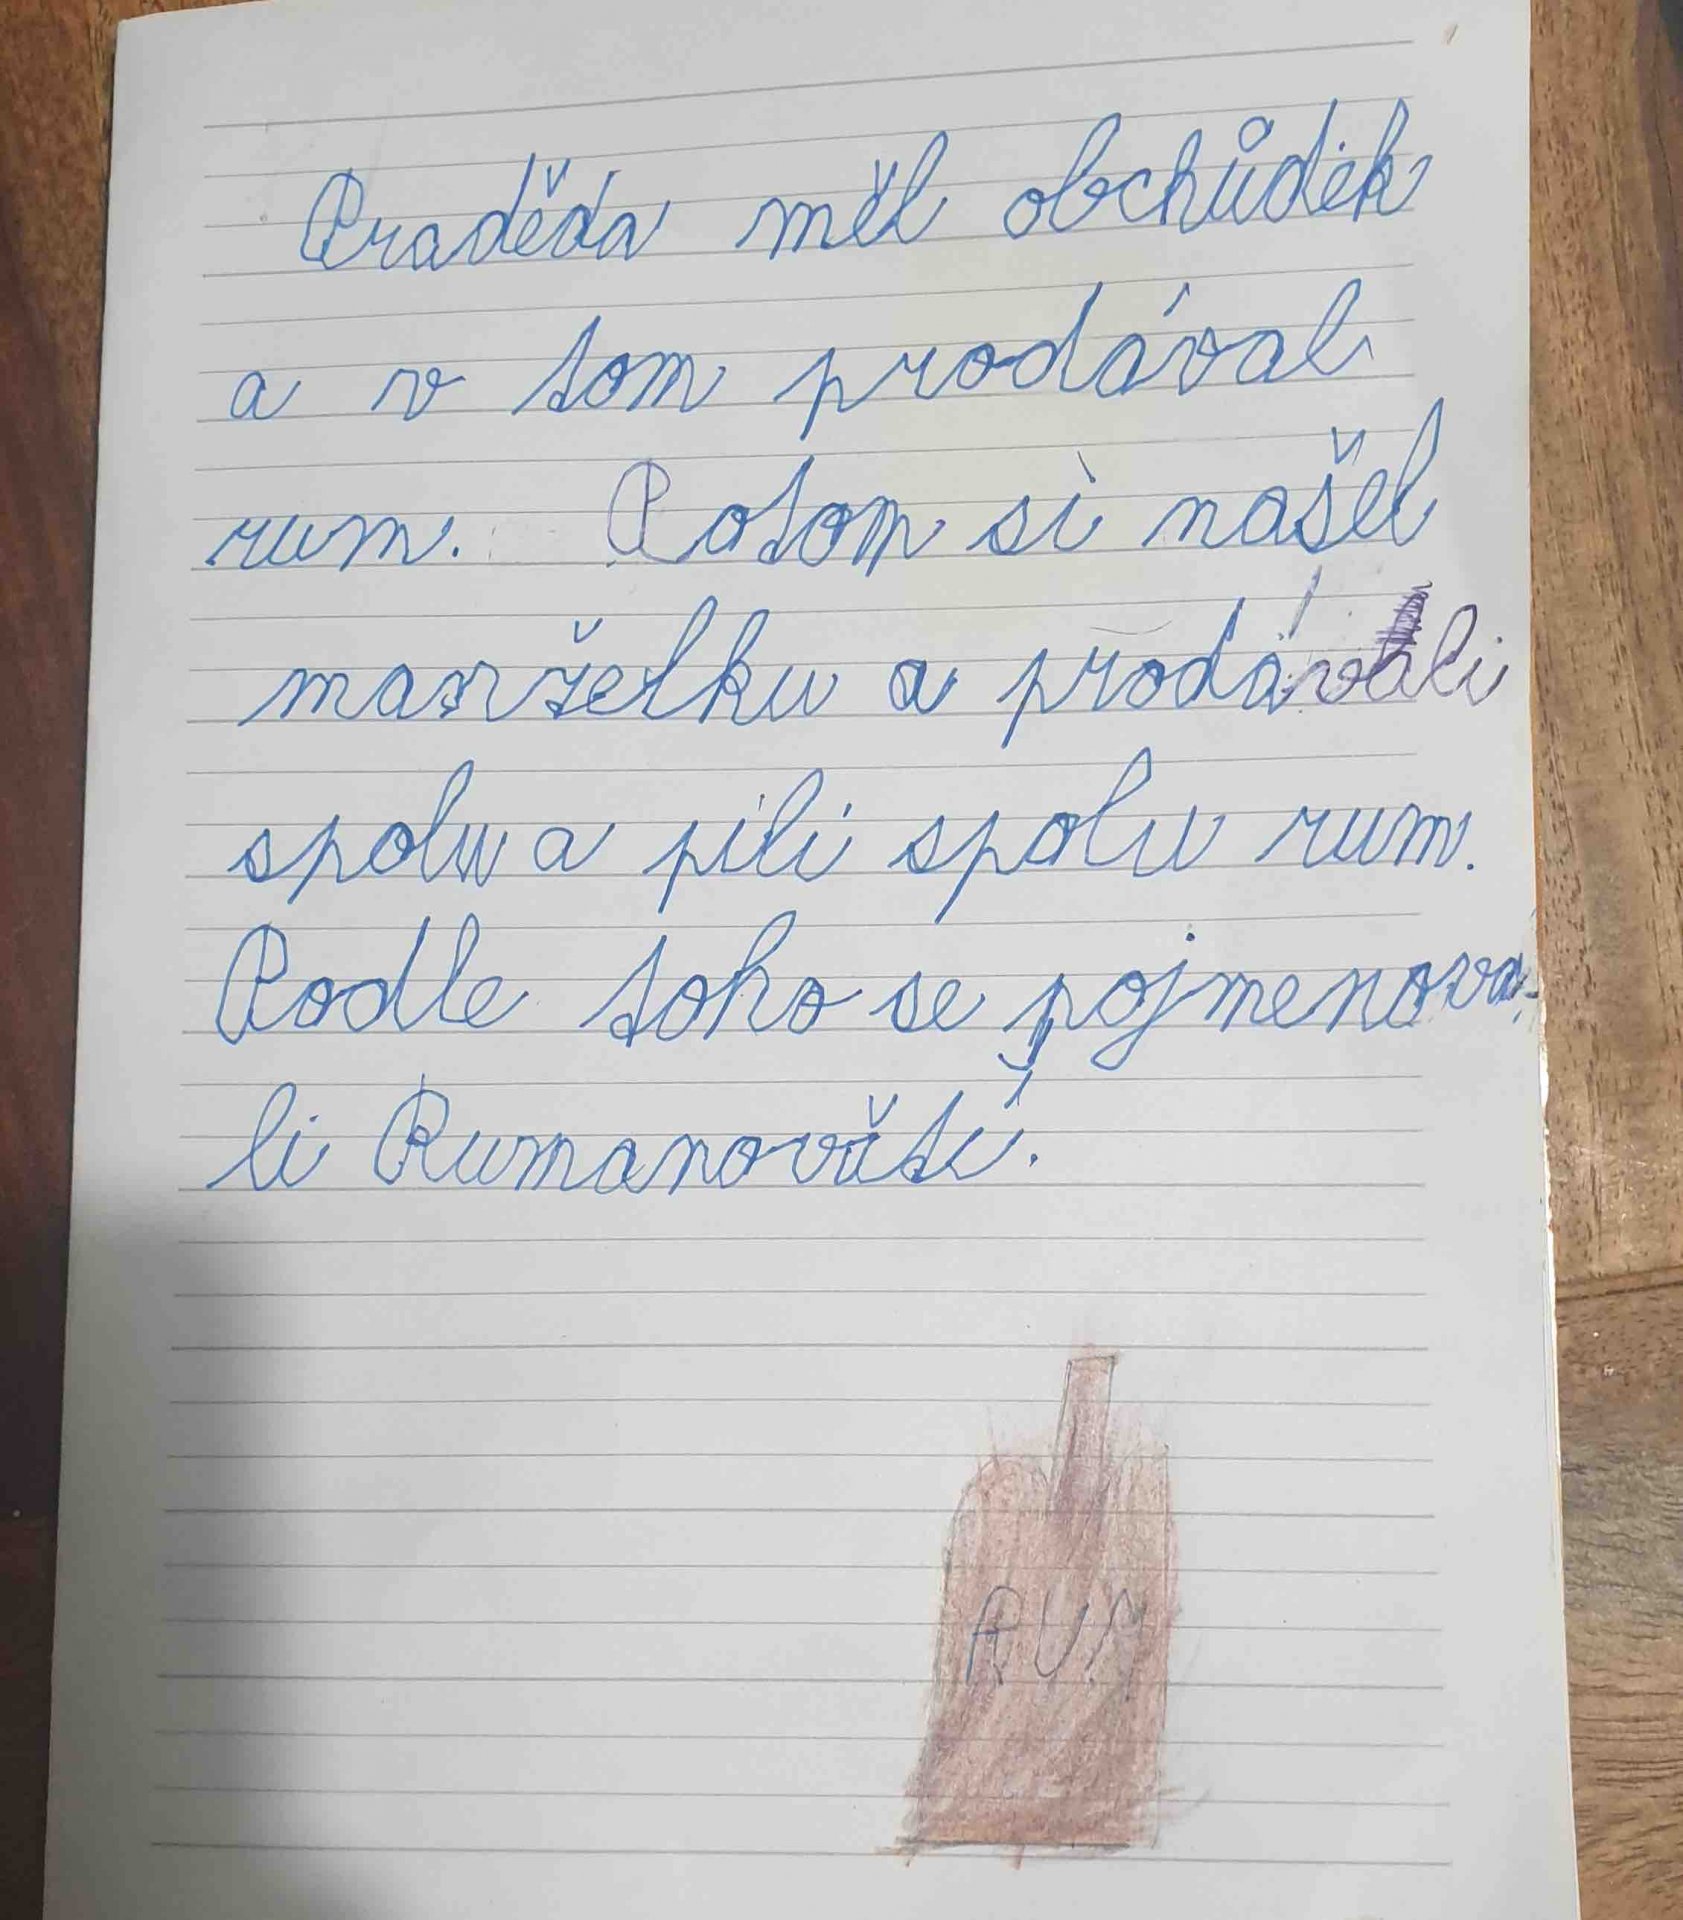 Praděda měl obchůdek
a v tom prodával
rum. Potom si našel
manželku a prodávali
spolu a pili spolu rum.
Podle toho se pojmenova-
li Rumanovští.
RUM